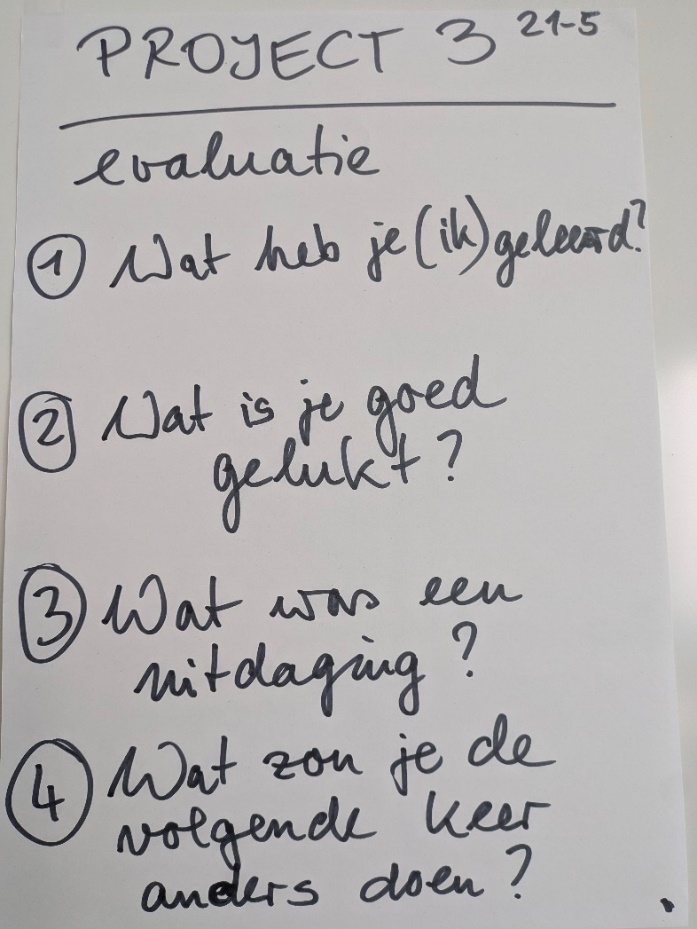 PROJECT 3 21-5
evaluatie
1 Wat heb je (ik) geleerd?
2 Wat is je goed
gelukt?
3 Wat was een
uitdaging?
4 Wat zou je de
volgende keer
anders doen?